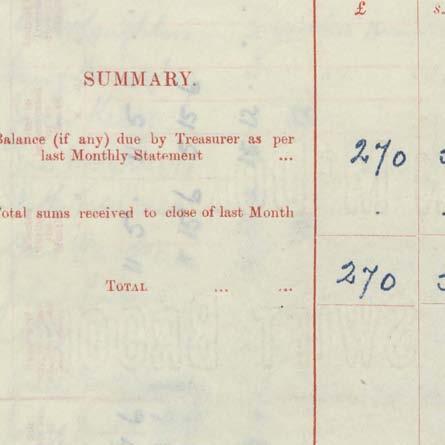 £
SUMMARY.
Balance (if any) due by Treasurer as per
last Monthly Statement ... 270
Total sums received to close of last Month
TOTAL ... ... 270